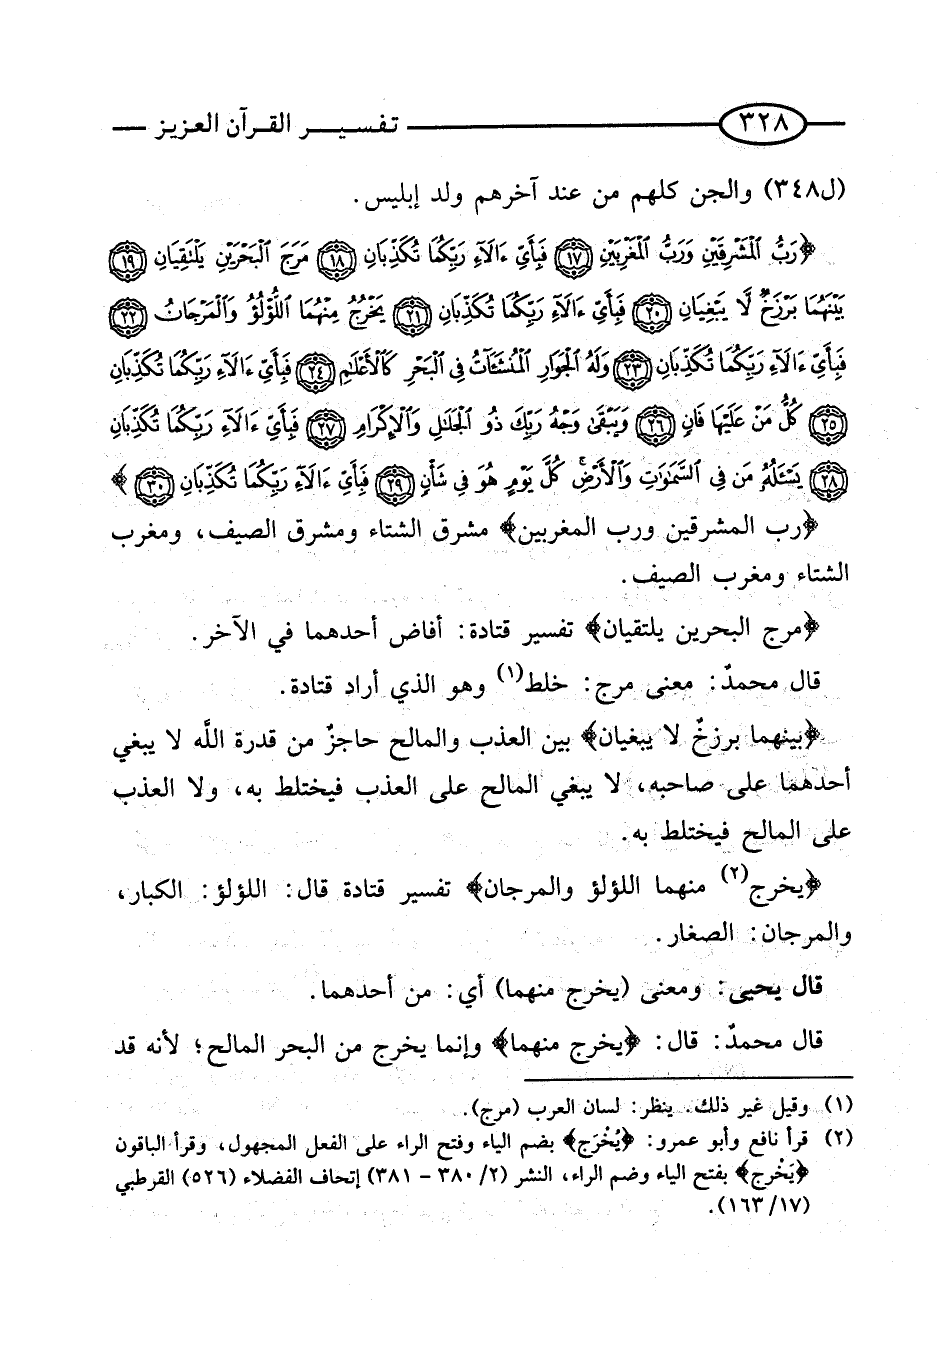 ٣٢٨ تفسير القرآن العزيز
(ل٣٤٨) والجن كلهم من عند آخرهم ولد إبليس.
﴿رَبُّ الْمَشْرِقَيْنِ وَرَبُّ الْمَغْرِبَيْنِ ١٧ فَبِأَيِّ ءَالَآءِ رَبِّكُمَا تُكَذِّبَانِ ١٨ مَرَجَ الْبَحْرَيْنِ يَلْتَقِيَانِ ١٩
بَيْنَهُمَا بَرْزَخٌ لَّا يَبْغِيَانِ ٢٠ فَبِأَيِّ ءَالَآءِ رَبِّكُمَا تُكَذِّبَانِ ٢١ يَخْرُجُ مِنْهُمَا اللُّؤْلُؤُ وَالْمَرْجَانُ ٢٢
فَبِأَيِّ ءَالَآءِ رَبِّكُمَا تُكَذِّبَانِ ٢٣ وَلَهُ الْجَوَارِ الْمُنشَـَٔاتُ فِي الْبَحْرِ كَالْأَعْلَٰمِ ٢٤ فَبِأَيِّ ءَالَآءِ رَبِّكُمَا تُكَذِّبَانِ
٢٥ كُلُّ مَنْ عَلَيْهَا فَانٍ ٢٦ وَيَبْقَىٰ وَجْهُ رَبِّكَ ذُو الْجَلَٰلِ وَالْإِكْرَامِ ٢٧ فَبِأَيِّ ءَالَآءِ رَبِّكُمَا تُكَذِّبَانِ
٢٨ يَسْـَٔلُهُ مَن فِي السَّمَٰوَٰتِ وَالْأَرْضِ ۚ كُلَّ يَوْمٍ هُوَ فِي شَأْنٍ ٢٩ فَبِأَيِّ ءَالَآءِ رَبِّكُمَا تُكَذِّبَانِ ٣٠﴾
﴿رب المشرقين ورب المغربين﴾ مشرق الشتاء ومشرق الصيف، ومغرب
الشتاء ومغرب الصيف.
﴿مرج البحرين يلتقيان﴾ تفسير قتادة: أفاض أحدهما في الآخر.
قال محمدٌ: معنى مرج: خلط(١) وهو الذي أراد قتادة.
﴿بينهما برزخٌ لا يبغيان﴾ بين العذب والمالح حاجزٌ من قدرة اللَّه لا يبغي
أحدهما على صاحبه، لا يبغي المالح على العذب فيختلط به، ولا العذب
على المالح فيختلط به.
﴿يخرج(٢) منهما اللؤلؤ والمرجان﴾ تفسير قتادة قال: اللؤلؤ: الكبار،
والمرجان: الصغار.
قال يحيى: ومعنى (يخرج منهما) أي: من أحدهما.
قال محمدٌ: قال: ﴿يخرج منهما﴾ وإنما يخرج من البحر المالح؛ لأنه قد
(١) وقيل غير ذلك. ينظر: لسان العرب (مرج).
(٢) قرأ نافع وأبو عمرو: ﴿يُخْرَج﴾ بضم الياء وفتح الراء على الفعل المجهول، وقرأ الباقون
﴿يَخْرج﴾ بفتح الياء وضم الراء، النشر (٢/ ٣٨٠ - ٣٨١) إتحاف الفضلاء (٥٢٦) القرطبي
(١٧/ ١٦٣).